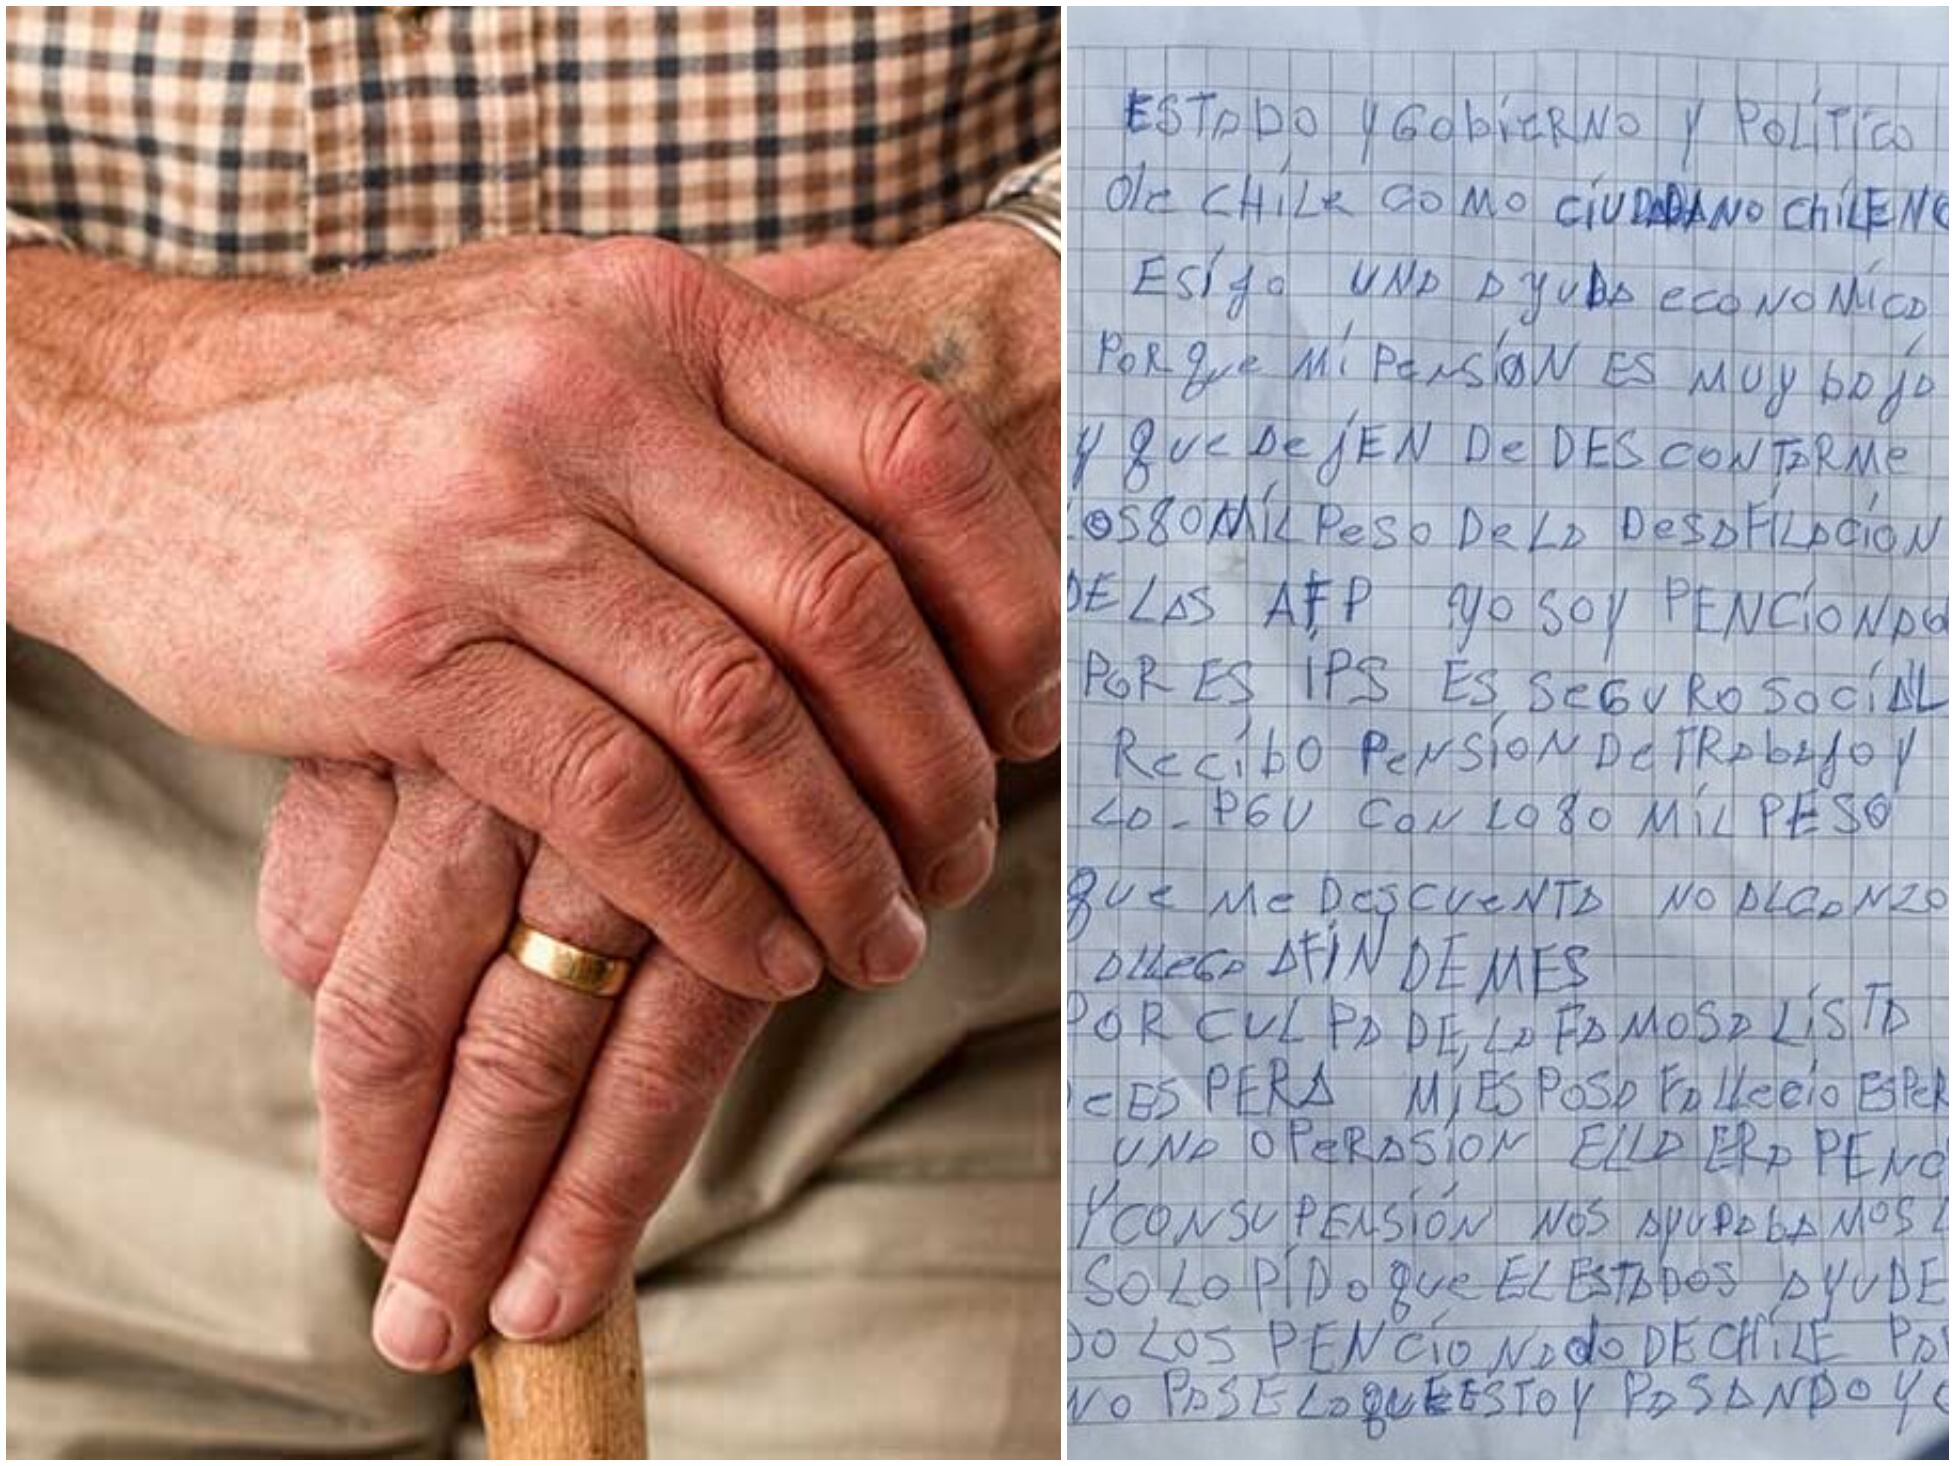 ESTADO Y GobiERNO Y POLÍTICO
de CHILE COMO CIUDADANO CHILENO
ESIJO UNA AYUDA ECONOMICA
PORque Mi PENSION ES MUY bAJA
Y que DejEN De DESCONTARMe
LOS 80 MIL PeSO De LA DeSAFILACION
DE LAS AFP YO SOY PENCIONADO
POR ES IPS ES SeGURO SOCIAL
ReCibO PeNSION De TRAbAJO Y
LA - PGU CON LO 80 MIL PESO
que Me DesCUeNTA NO ALCANZO
A LLeGA A FIN DE MES
POR CULPA DE LA FAMOSA LISTA
De ESPERA Mi ESPOSA FALLeCIO ESPER
UNA OPeRASION ELLA ERA PENC
Y CON SU PENSION NOS AYUDAbAMOS L
SOLO PIDO que EL ESTADOS AYUDE
LOS PENCIONAdo DE CHILE PA
NO PASE LO QUE ESTOY PASANDO YO